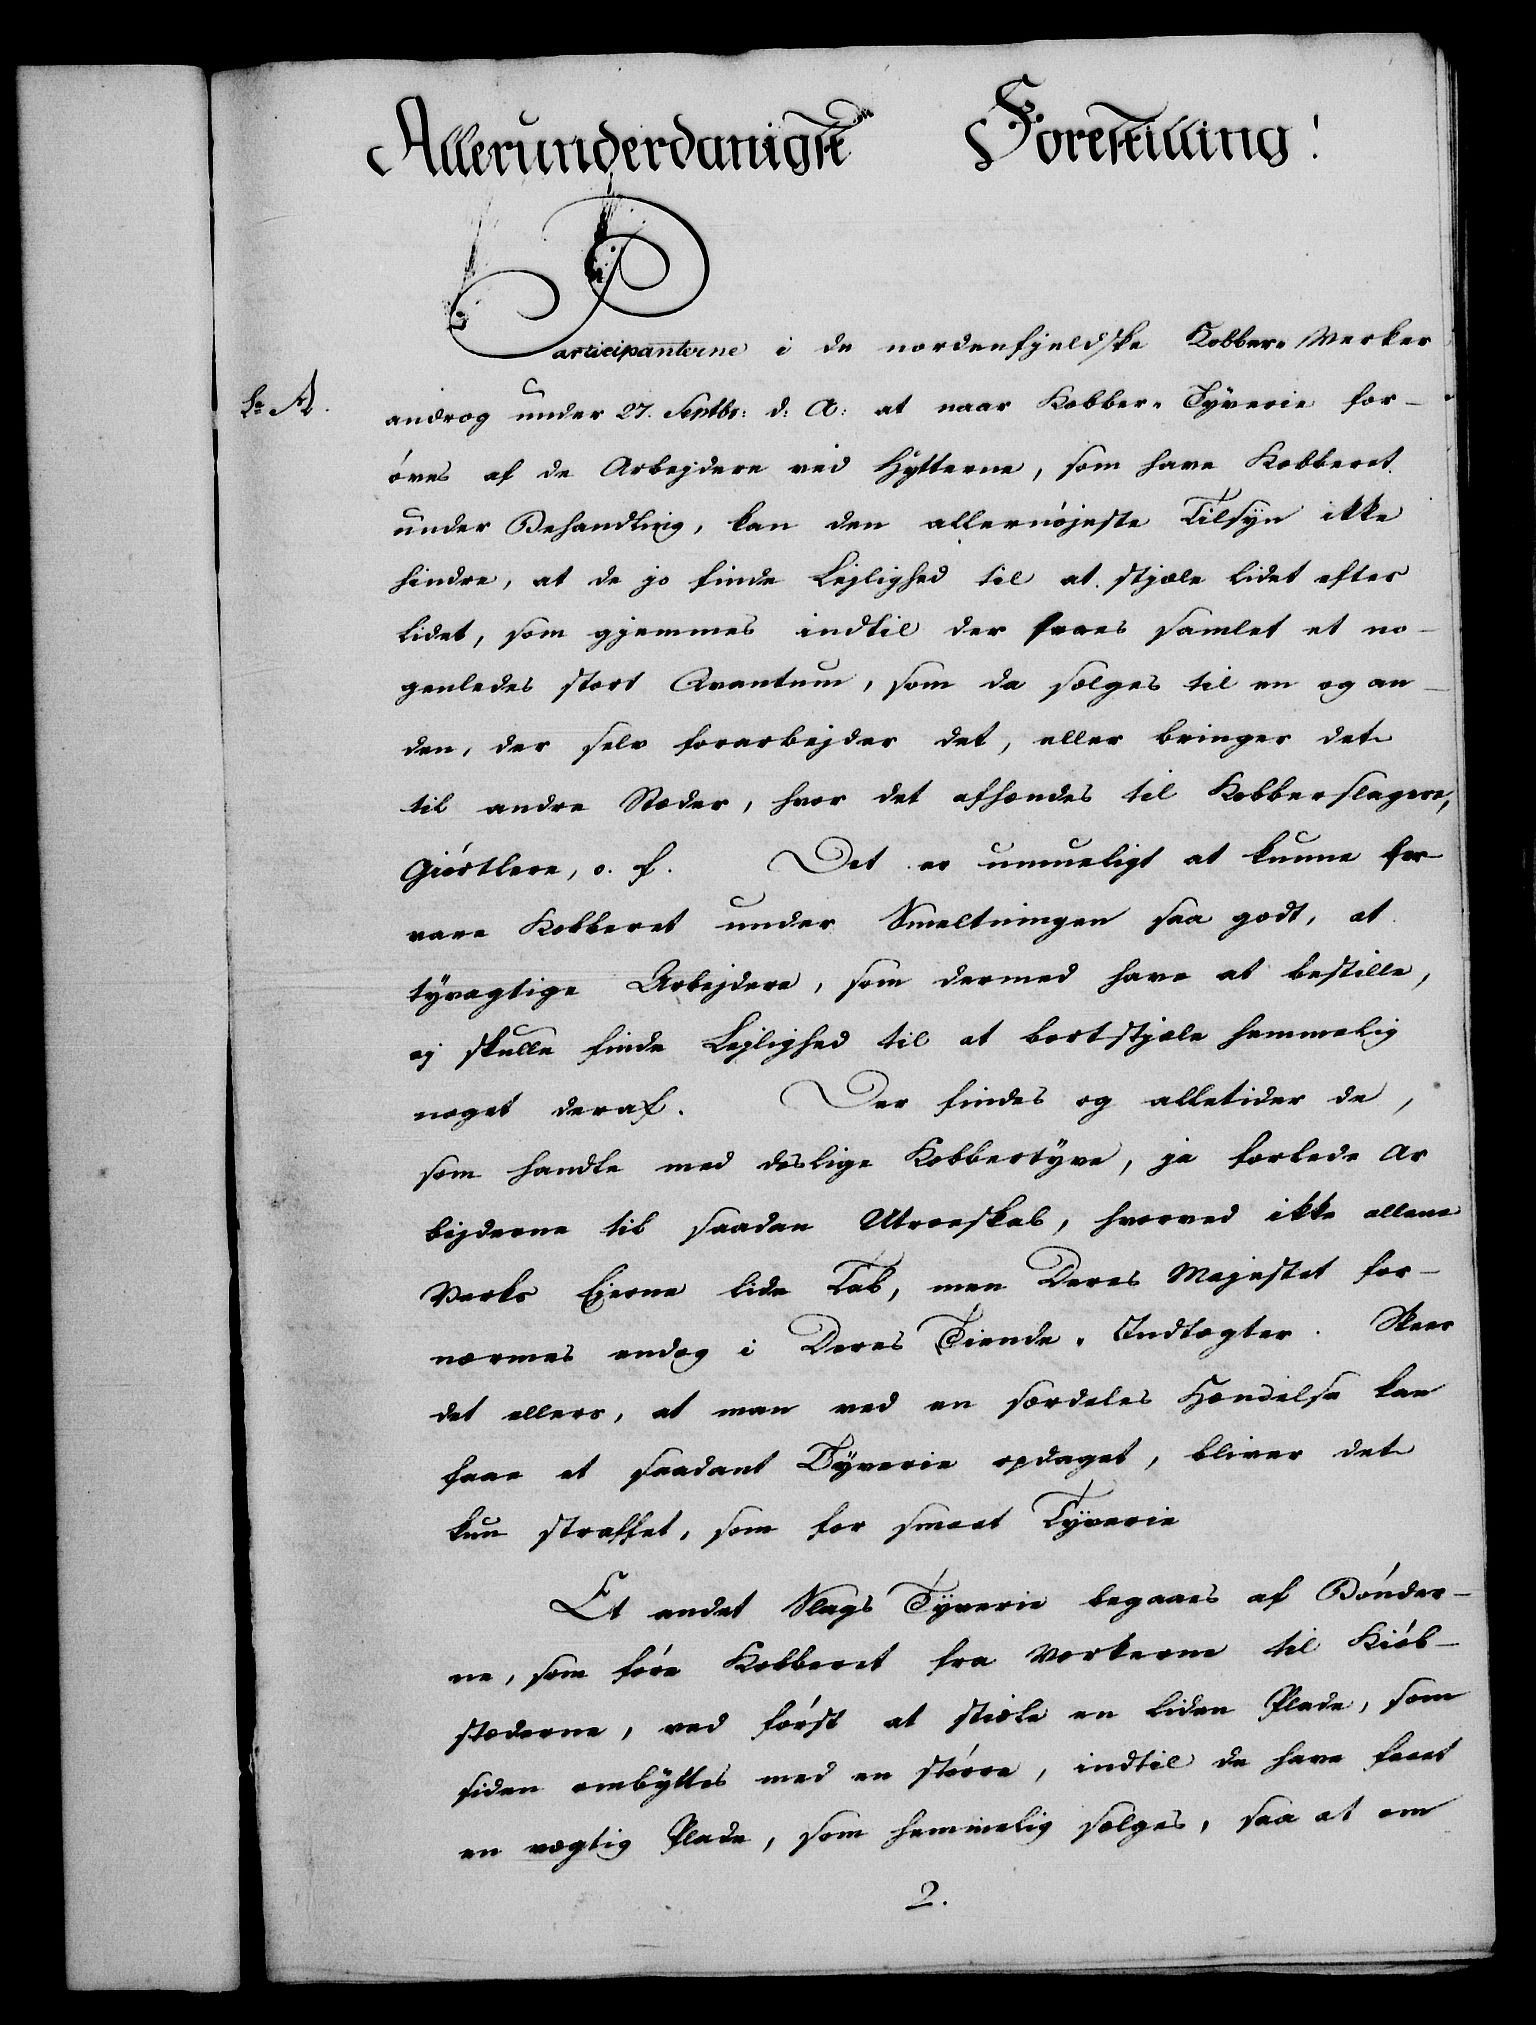 Allerunderdanigste Forestilling!
Participanterne i de nordenfjeldske Kobber-Verker
Lr. A.
androg under 27. Septbr: d: A: at naar Kobber-Tÿverie for-
öves af de Arbejdere ved Hÿtterne, som have Kobberet
under Behandling, kan den allernöjeste Tilsÿn ikke
hindre, at de jo finde Lejlighed til at stjæle lidet efter
lidet, som gjemmes indtil der faaes samlet et no-
genledes stort Qvantum, som da sælges til en og an-
den, der selv forarbejder det, eller bringer det
til andre Stæder, hvor det afhændes til Kobberslagere,
Giörtlere, o. f. Det er umueligt at kunne for-
vare Kobberet under Smeltningen saa godt, at
tÿvagtige Arbejdere, som dermed have at bestille,
ej skulle finde Lejlighed til at bortstjæle hemmelig
noget deraf. Der findes og alletider de,
som handle med deslige Kobbertÿve, ja forlede Ar
bejderne til saadan Utroeskab, hvorved ikke allene
Verks Ejerne lide Tab, men Deres Majestet for-
nærmes endog i Deres Tiende-Indtægter. Skeer
det ellers, at man ved en særdeles Hændelse kan
faae et saadant Tÿverie opdaget, bliver det
kun straffet, som for smaat Tÿverie
Et andet Slags Tÿverie begaaes af Bönder-
ne, som före Kobberet fra Verkerne til Kiöb-
stæderne, ved först at stiæle en liden Plade, som
siden ombÿttes med en större, indtil de have faaet
en vægtig Plade, som hemmelig sælges, saa at om
2.